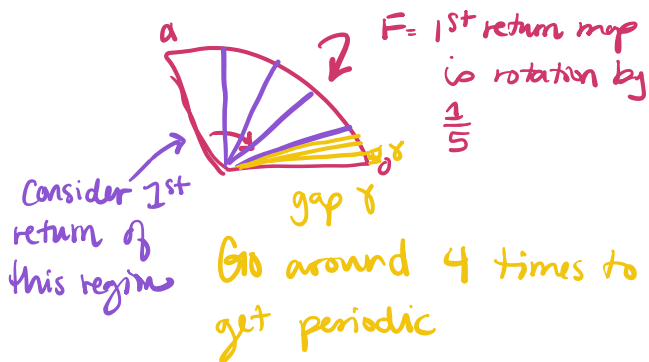 a
F = 1st return map
is rotation by
1/5
0
r
Consider 1st
return of
this region
gap r
Go around 4 times to
get periodic